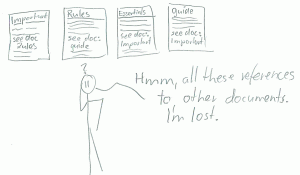 Important
see doc
Rules
Rules
see doc
guide
Essentials
see doc
important
guide
see doc
Important
?
Hmm, all these references
to other documents.
I'm lost.